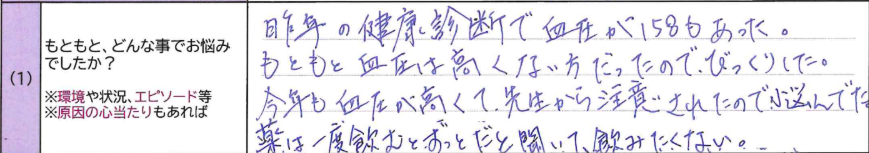 (1)
もともと、どんな事でお悩み
でしたか？
※環境や状況、エピソード等
※原因の心当たりもあれば
昨年の健康診断で血圧が158もあった。
もともと血圧は高くない方だったので、びっくりした。
今年も血圧が高くて、先生から注意されたので悩んでた
薬は一度飲むとずっとだと聞いて、飲みたくない。